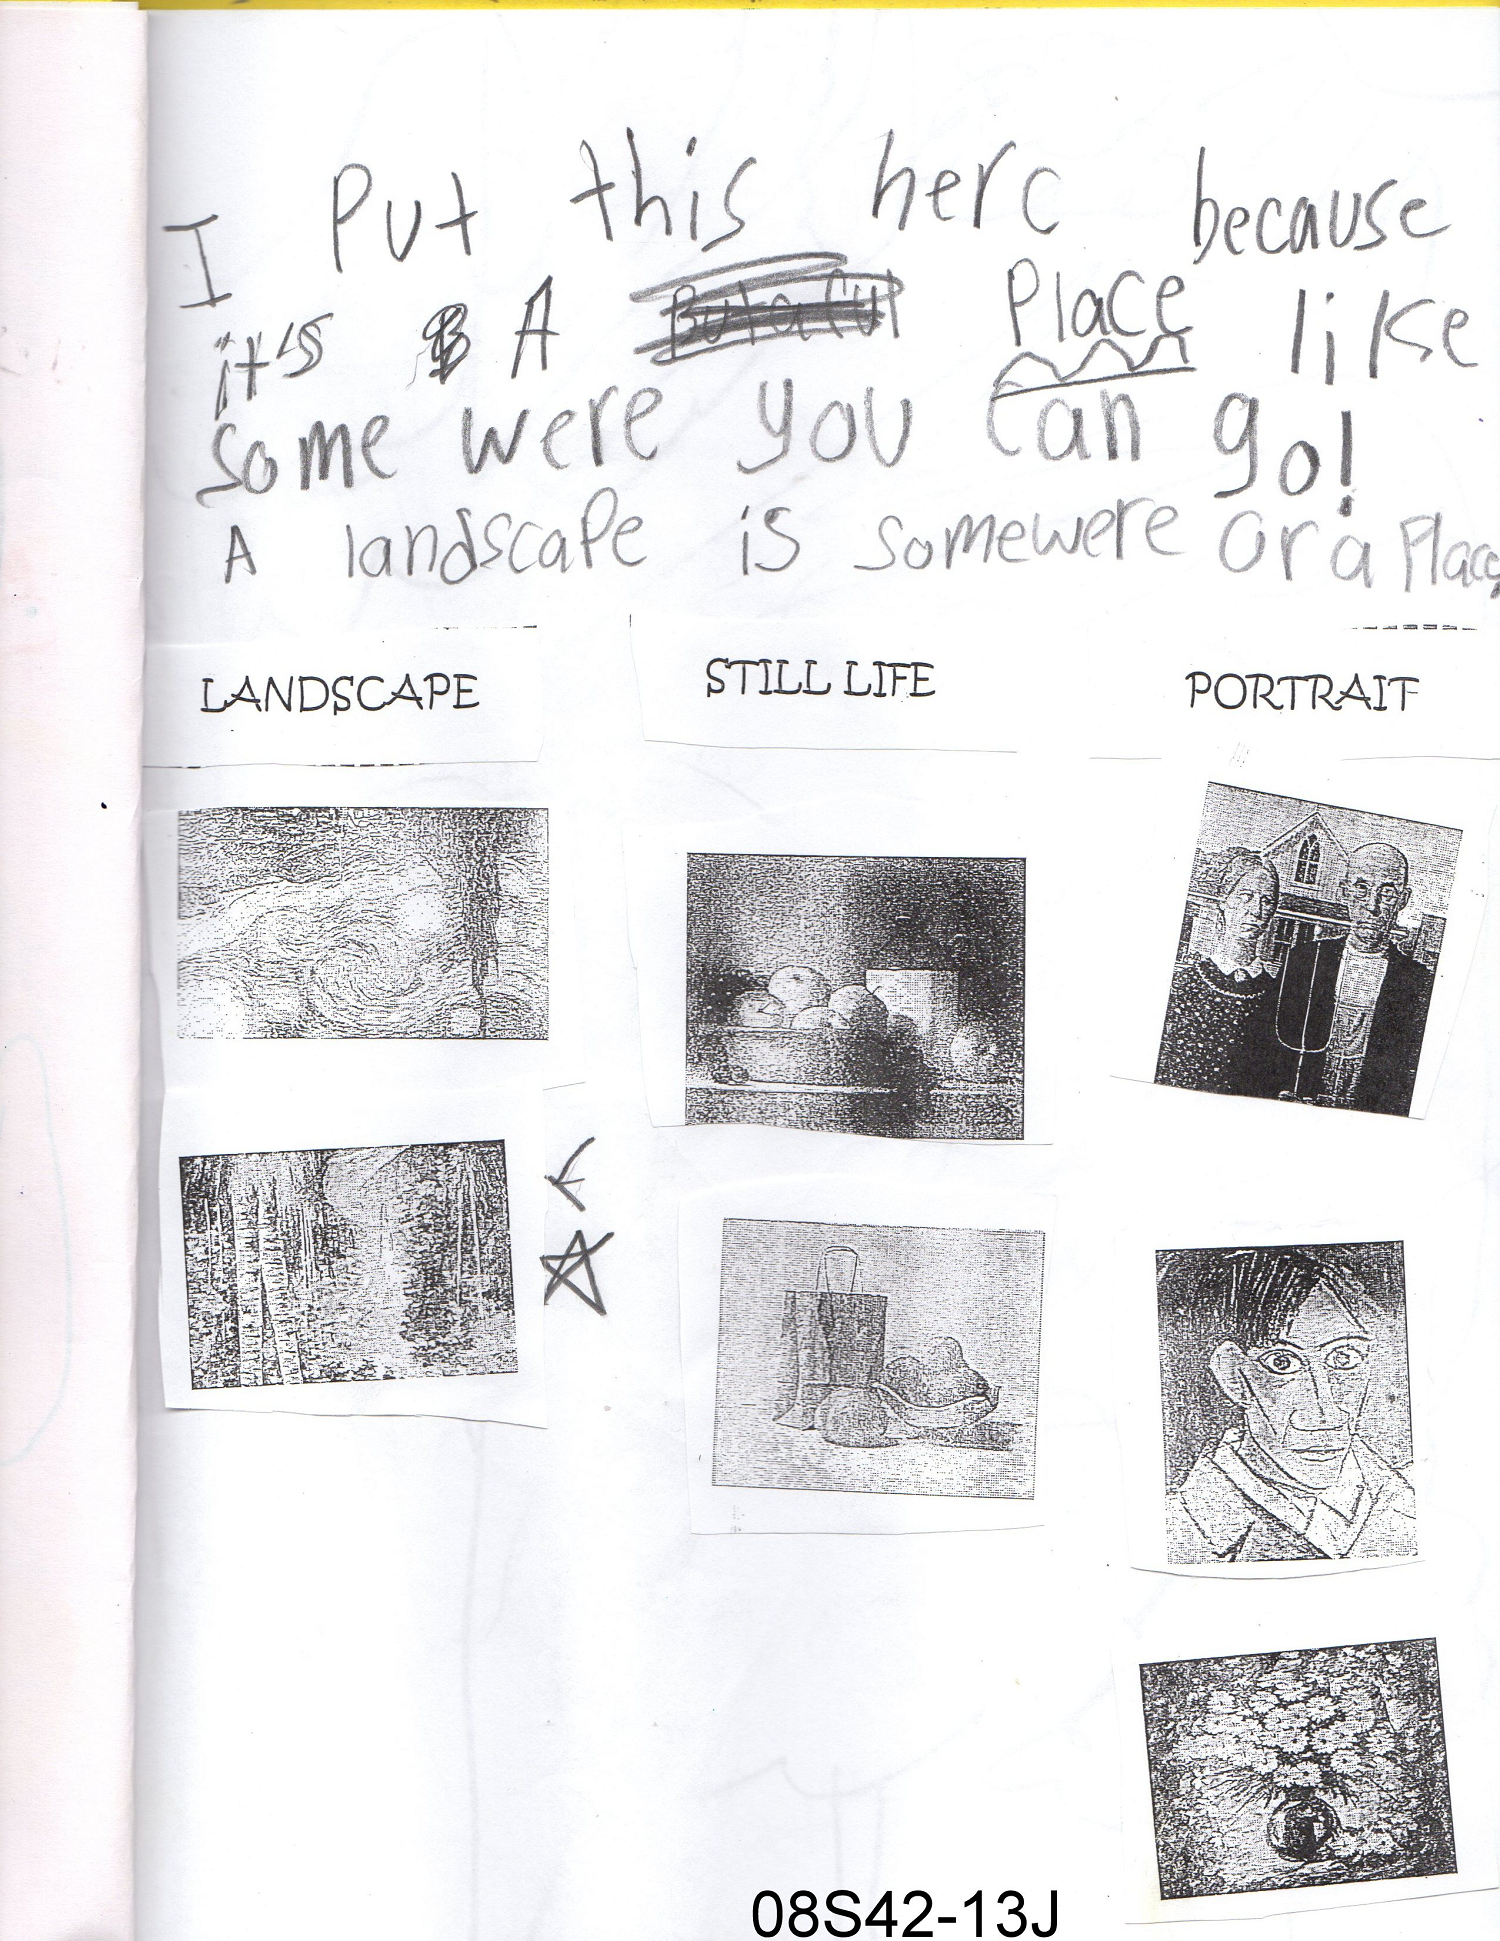 I Put this here because
it's A Butaful Place like
some were you can go!
A landscape is somewere or a Place
LANDSCAPE
STILL LIFE
PORTRAIT
08S42-13J